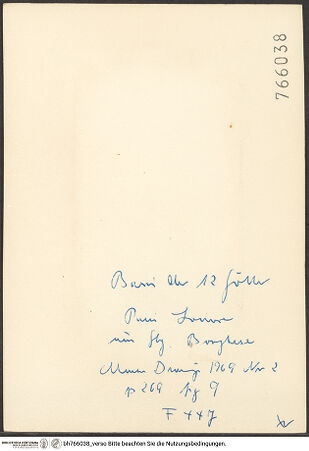 766038
Basis der 12 Götter
Paris Louvre
Slg. Borghese
1969 Nr 2
p 269 fg 9
F 447
bh766038_verso Bitte beachten Sie die Nutzungsbedingungen.